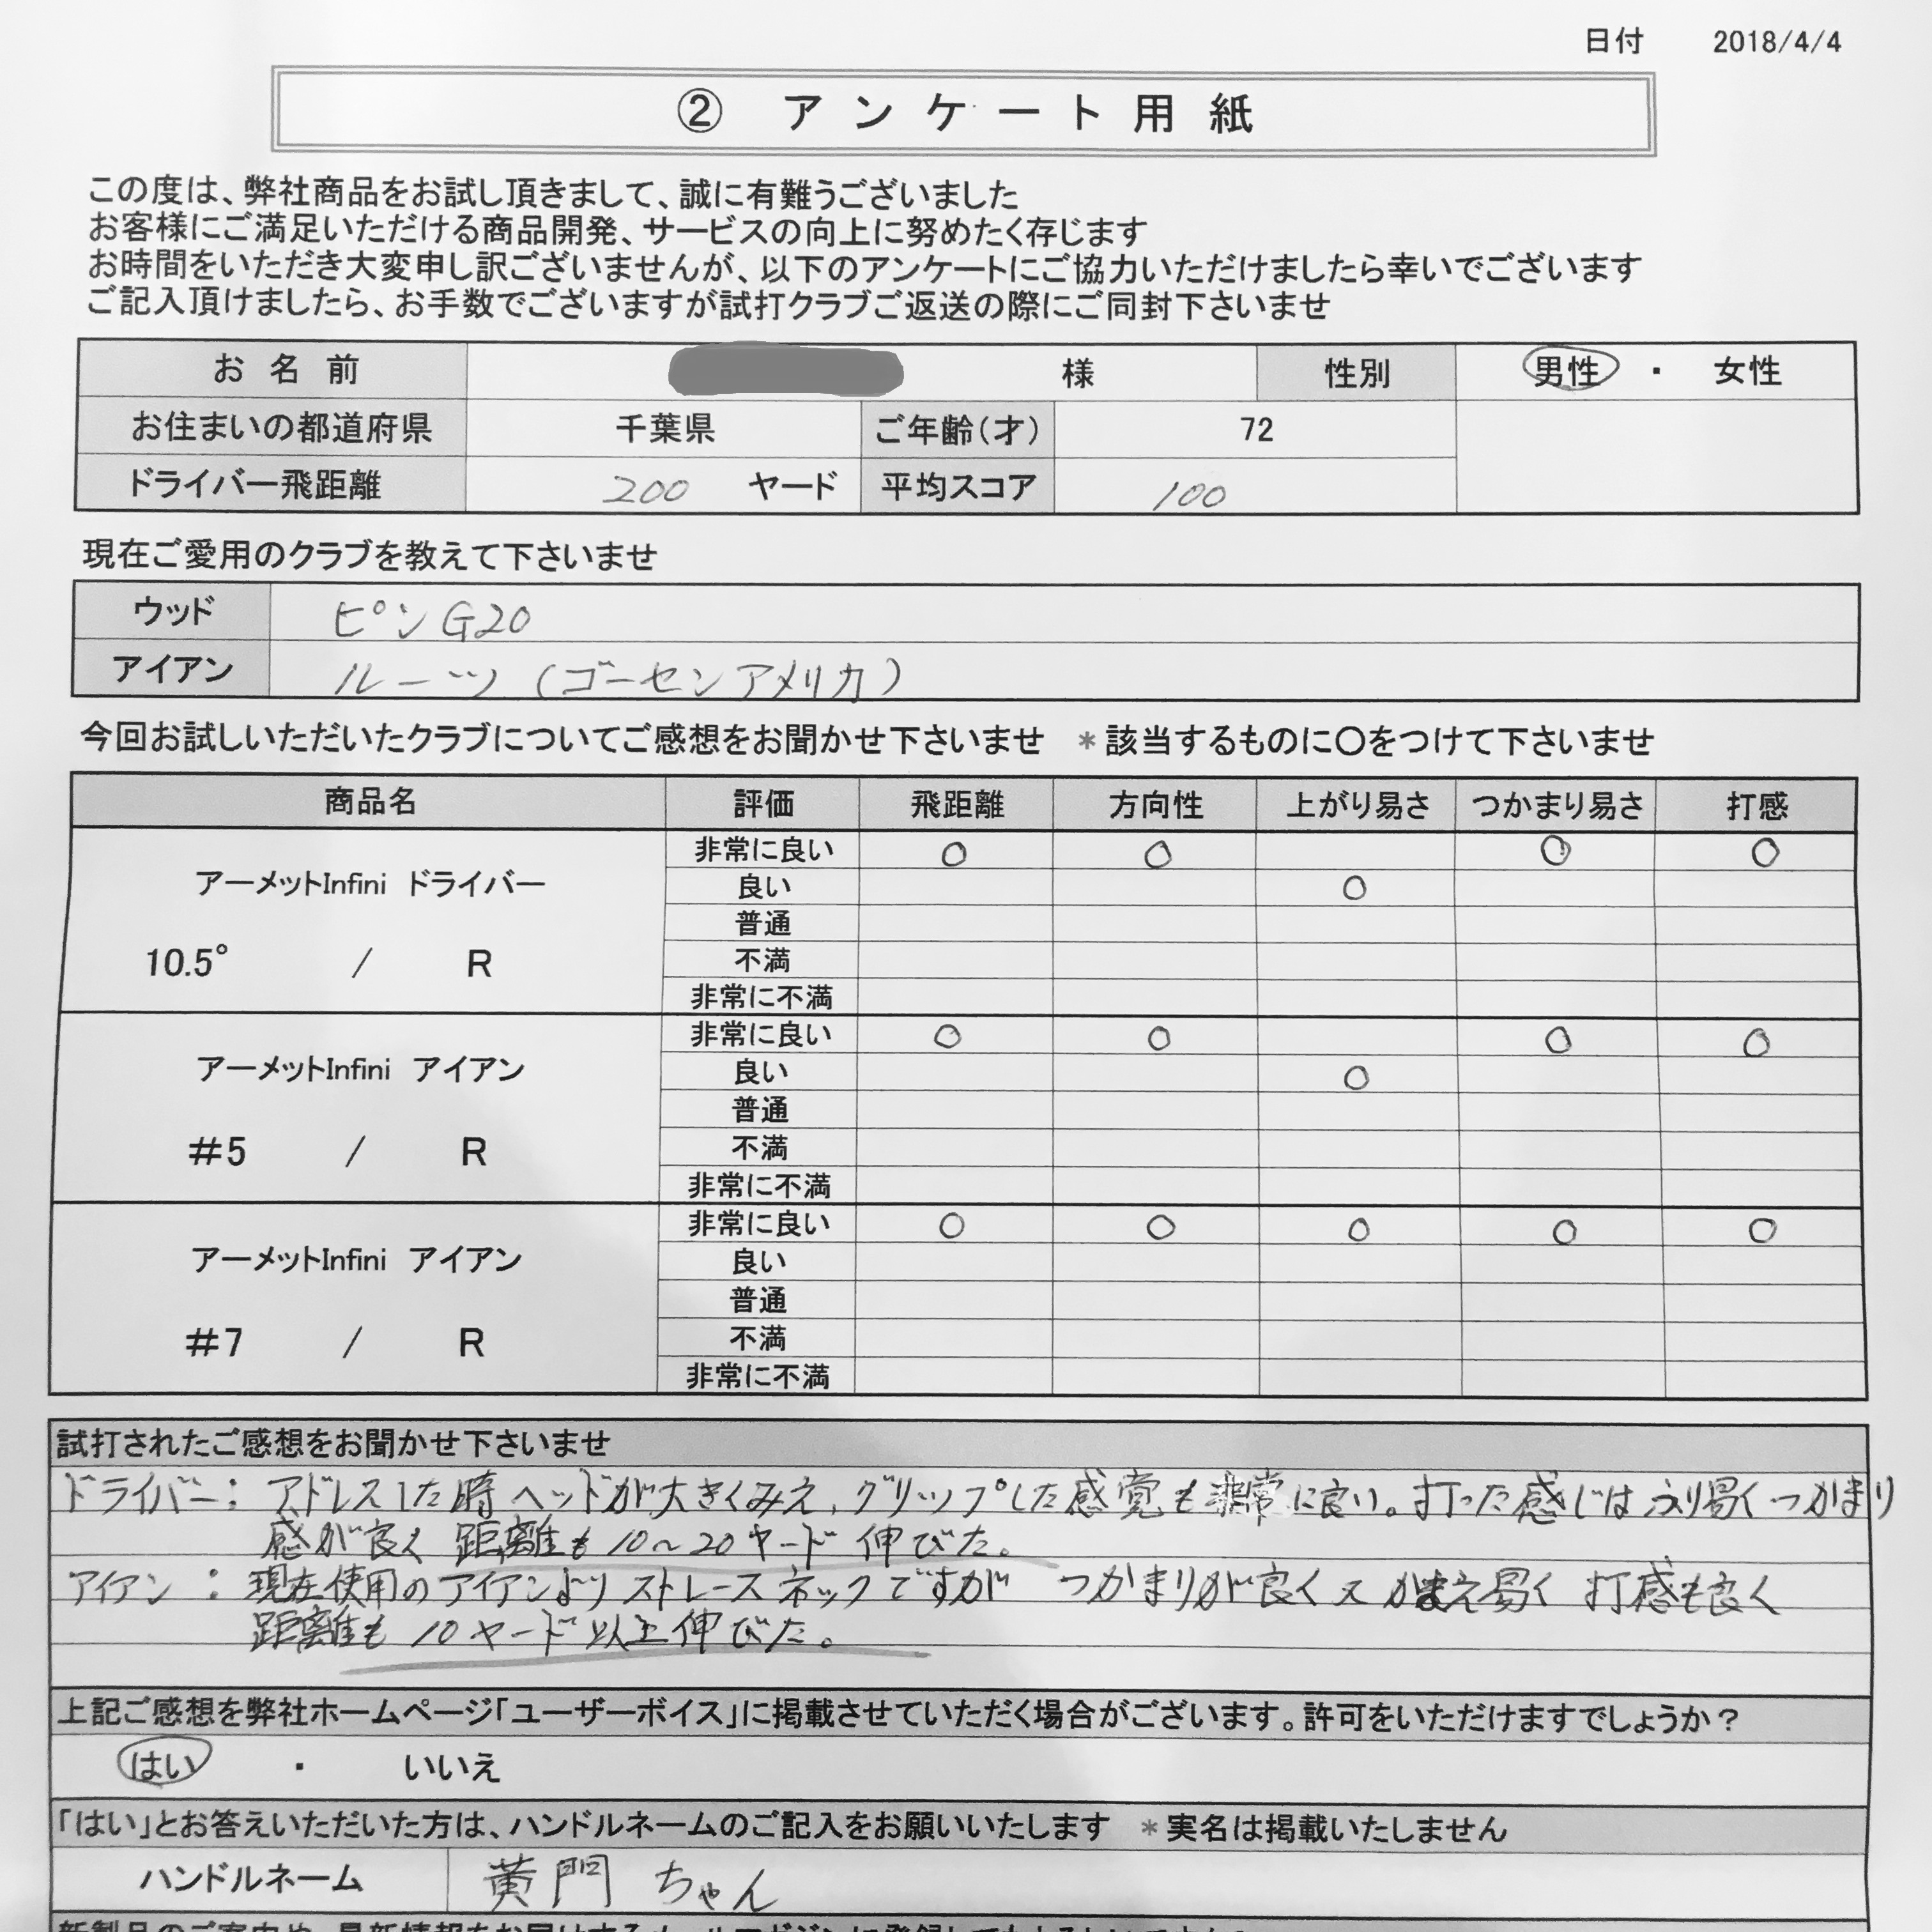 日付 2018/4/4
② アンケート用紙
この度は、弊社商品をお試し頂きまして、誠に有難うございました
お客様にご満足いただける商品開発、サービスの向上に努めたく存じます
お時間をいただき大変申し訳ございませんが、以下のアンケートにご協力いただけましたら幸いでございます
ご記入頂けましたら、お手数でございますが試打クラブご返送の際にご同封下さいませ
お名前 様 性別 男性 ・ 女性
お住まいの都道府県 千葉県 ご年齢(才) 72
ドライバー飛距離 200 ヤード 平均スコア 100
現在ご愛用のクラブを教えて下さいませ
ウッド ピンG20
アイアン ルーツ(ゴーセンアメリカ)
今回お試しいただいたクラブについてご感想をお聞かせ下さいませ *該当するものに〇をつけて下さいませ
商品名 評価 飛距離 方向性 上がり易さ つかまり易さ 打感
アーメットInfini ドライバー
10.5° / R
非常に良い 〇 〇 〇 〇
良い 〇
普通
不満
非常に不満
アーメットInfini アイアン
#5 / R
非常に良い 〇 〇 〇 〇
良い 〇
普通
不満
非常に不満
アーメットInfini アイアン
#7 / R
非常に良い 〇 〇 〇 〇 〇
良い
普通
不満
非常に不満
試打されたご感想をお聞かせ下さいませ
ドライバー:アドレスした時ヘッドが大きくみえ、グリップした感覚も非常に良い。打った感じはふり易くつかまり
感が良く距離も10~20ヤード伸びた。
アイアン:現在使用のアイアンよりストレースネックですが つかまりが良く又かまえ易く打感も良く
距離も10ヤード以上伸びた。
上記ご感想を弊社ホームページ「ユーザーボイス」に掲載させていただく場合がございます。許可をいただけますでしょうか?
はい ・ いいえ
「はい」とお答えいただいた方は、ハンドルネームのご記入をお願いいたします *実名は掲載いたしません
ハンドルネーム 黄門ちゃん